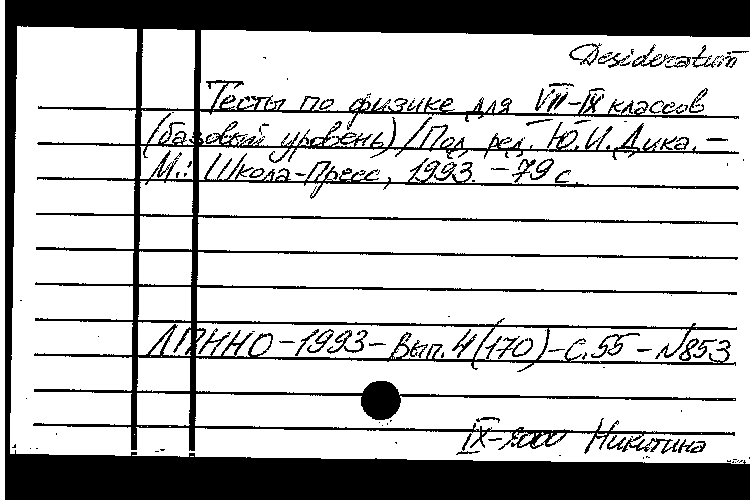 Desideratum
Тесты по физике для VII-IX классов
(базовый уровень) / Под ред. Ю.И. Дика. –
М.: Школа-Пресс, 1993. – 79 с.
ЛПННО – 1993 – Вып. 4 (170) – С. 55 – №853
IX-2000 Никитина